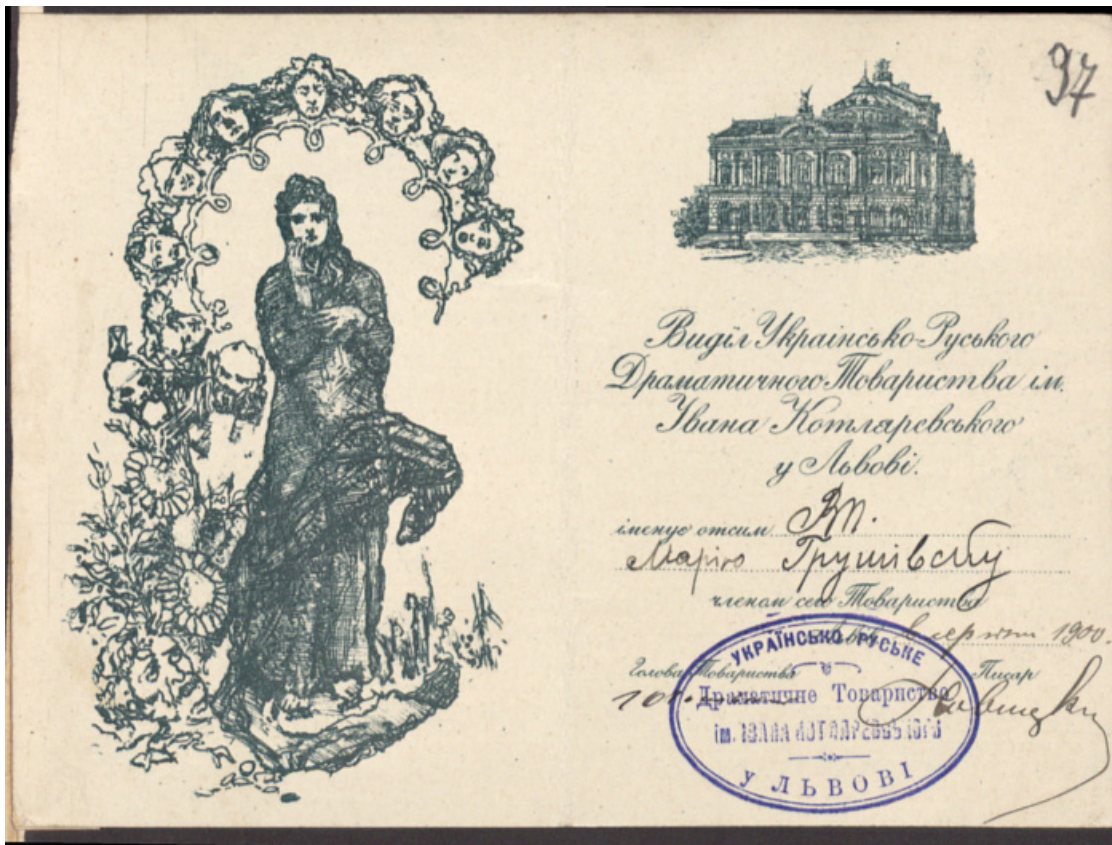 97
Виділ Українсько-Руського
Драматичного Товариства ім.
Ивана Котляревського
у Львові.
іменує отсим ВП.
Марію Грушівську
членом сего Товариства
серпня 1900
Голова Товариства Писар
УКРАЇНСЬКО РУСЬКЕ
Драматичне Товариство
ім. ІВАНА КОТЛЯРЕВСЬКОГО
У ЛЬВОВІ